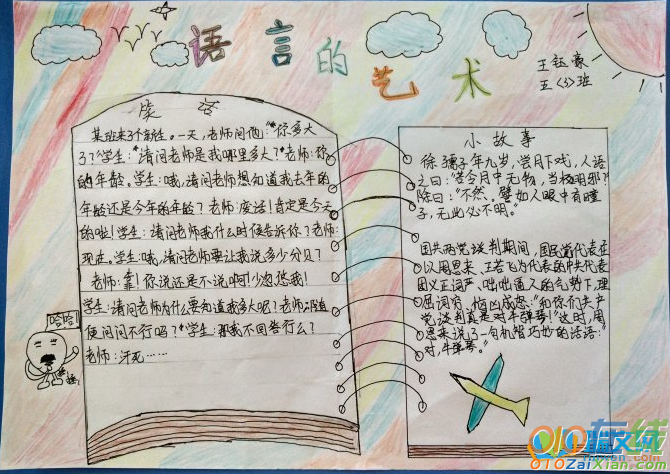 语言的艺术
王钰豪
五〈3〉班
笑话
某班来了个新生。一天,老师问他:"你多大
了?"学生:"请问老师是我哪里多大?"老师:你
的年龄。学生:哦,请问老师想知道我去年的
年龄还是今年的年龄?老师:废话!肯定是今天
的啦!学生:请问老师我什么时候告诉你?老师:
现在。学生:哦,请问老师要让我说多少分贝?
老师:靠!你说还是不说啊!少忽悠我!
学生:请问老师为什么要知道我多大呢?老师:随
便问问不行吗?"学生:那我不回答行么?
老师:汗死……
哈哈!
小故事
徐孺子年九岁,尝月下戏,人语
之曰:"若令月中无物,当极明邪?"
徐曰:"不然。譬如人眼中有瞳
子,无此必不明。"
国共两党谈判期间,国民党代表在
以周恩来、王若飞为代表的中共代表
团义正词严、咄咄逼人的气势下,理
屈词穷,恼凶成怒:"和你们共产
党谈判真是对牛弹琴!"这时,周
恩来说了一句机智巧妙的话语:"
对,牛弹琴。"
在线
作文网
010ZaiXian.com